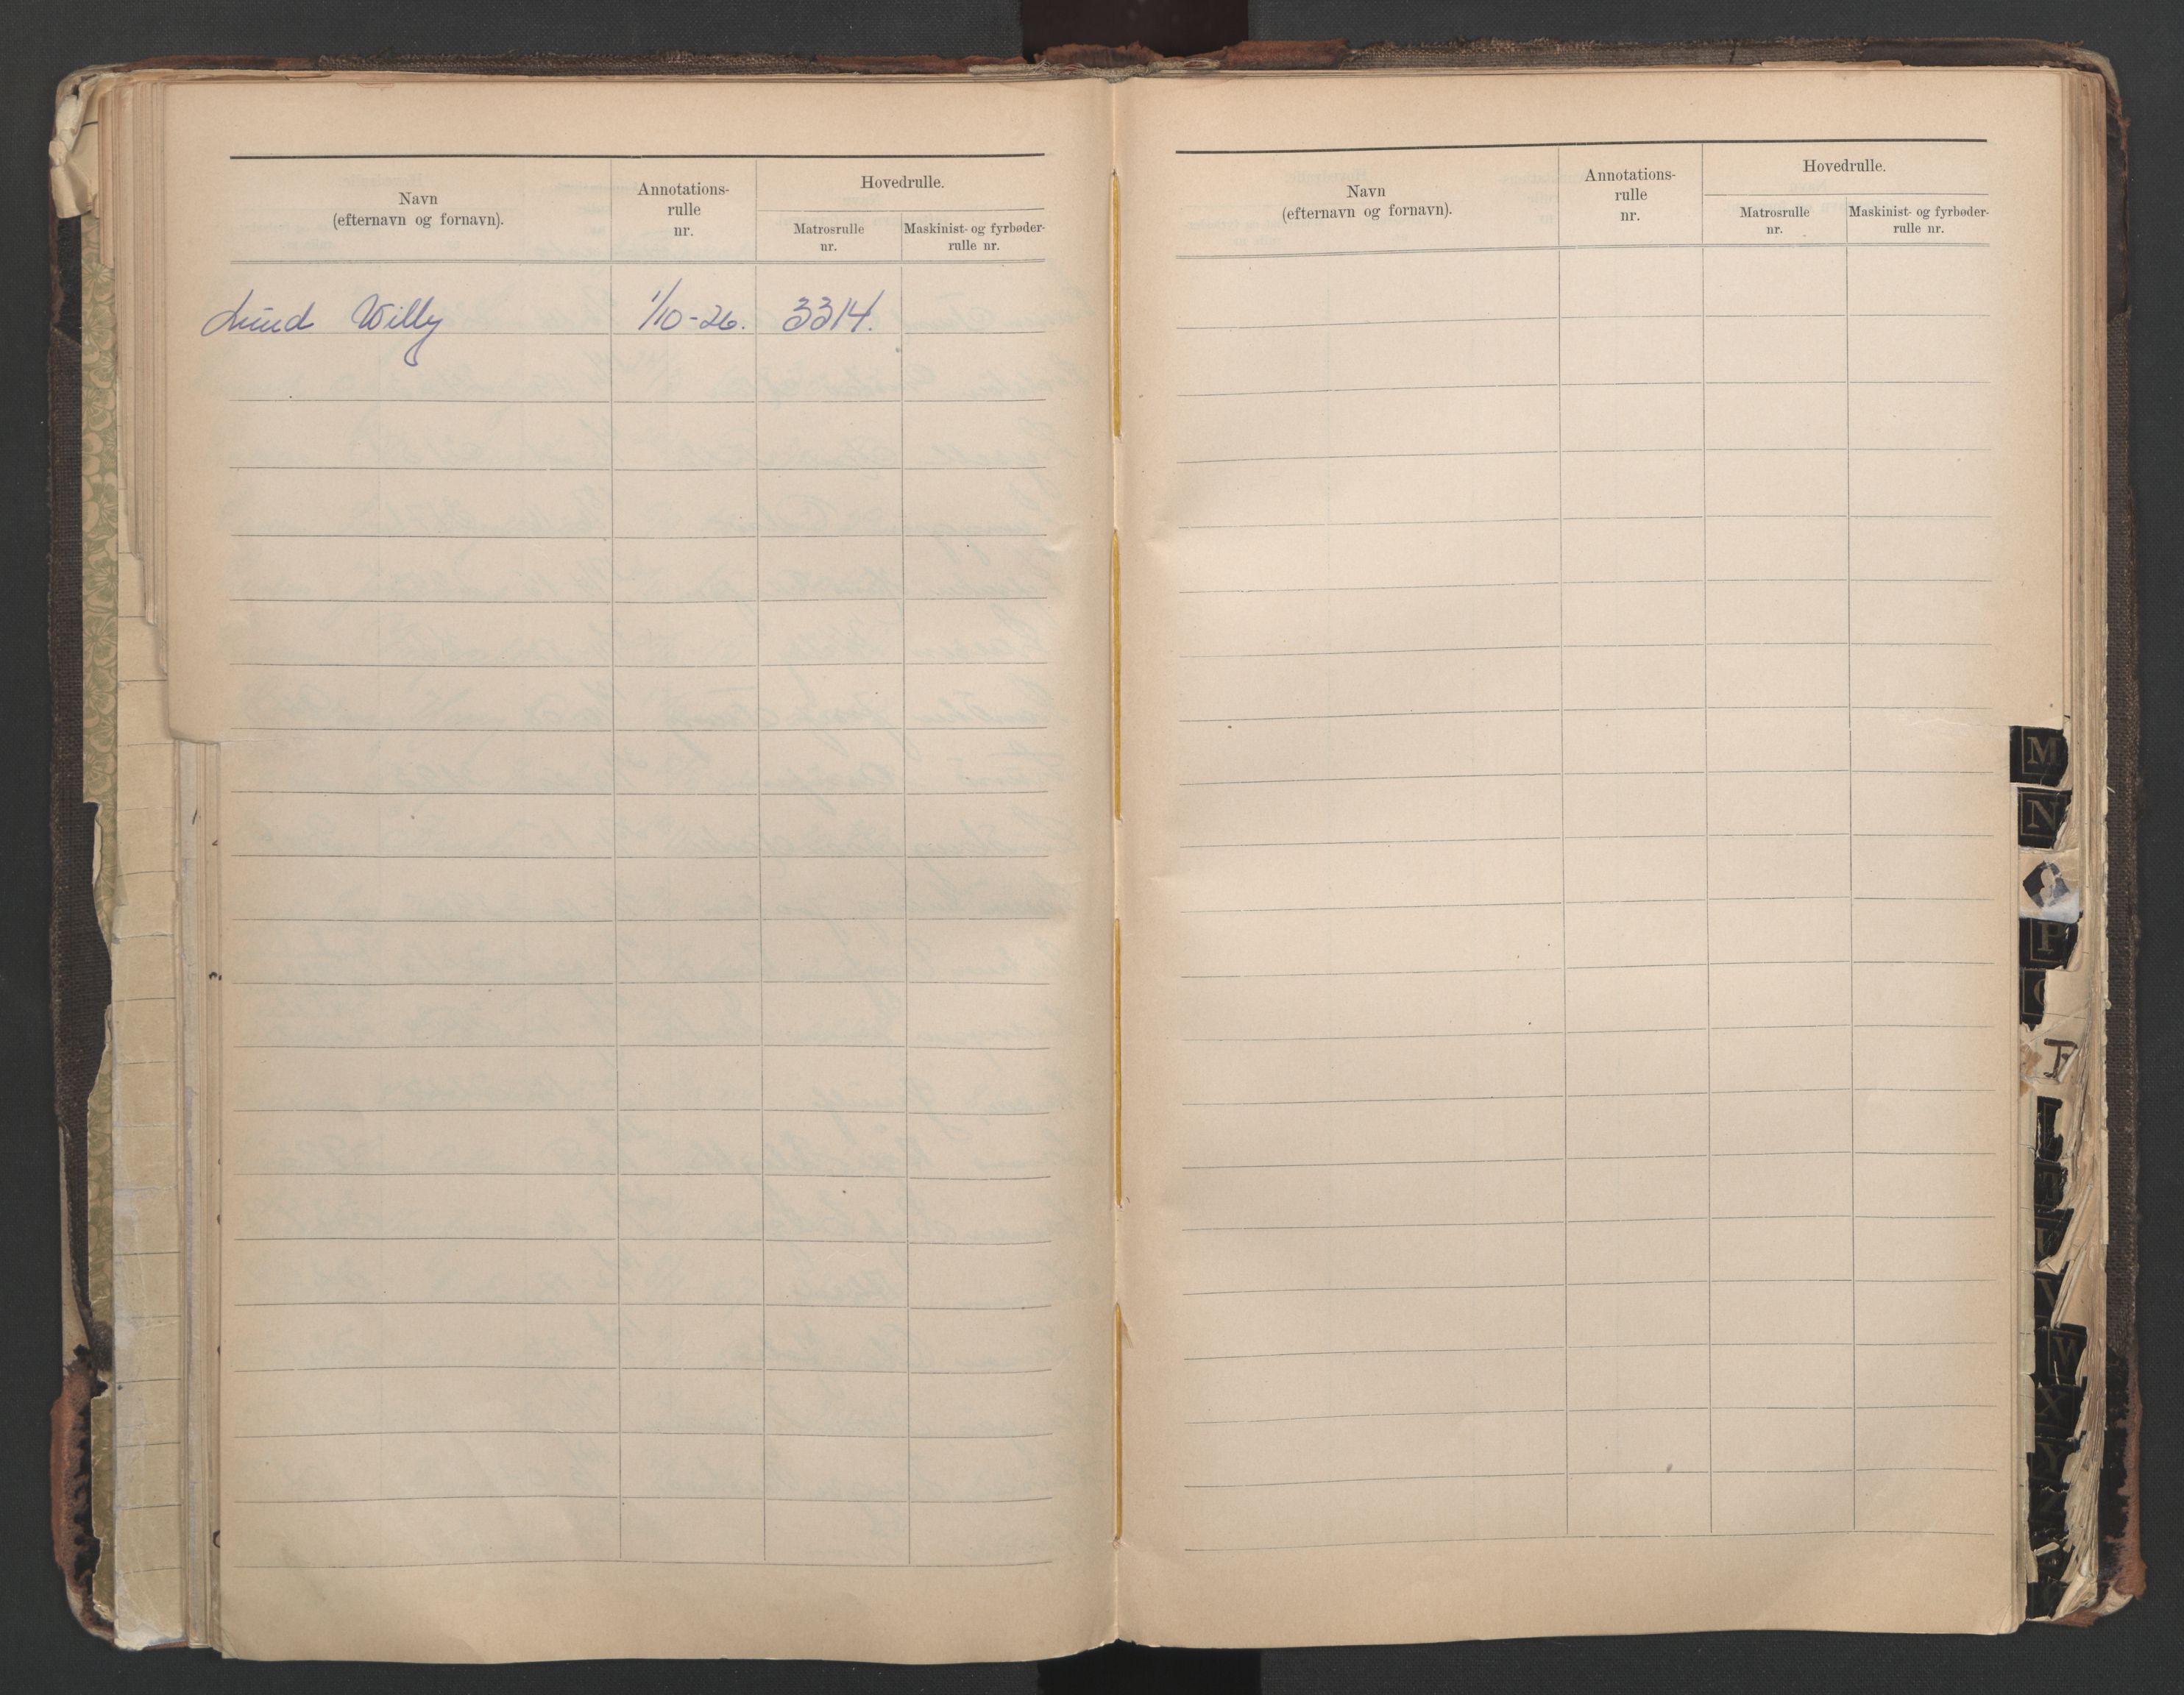 Navn
(efternavn og fornavn).
Annotations-
rulle
nr.
Hovedrulle.
Matrosrulle
nr.
Maskinist- og fyrbøder-
rulle nr.
Lund Willy 1/10-26. 3314.
Navn
(efternavn og fornavn).
Annotations-
rulle
nr.
Hovedrulle.
Matrosrulle
nr.
Maskinist- og fyrbøder-
rulle nr.
M
N
P
V
W
X
Y
Z